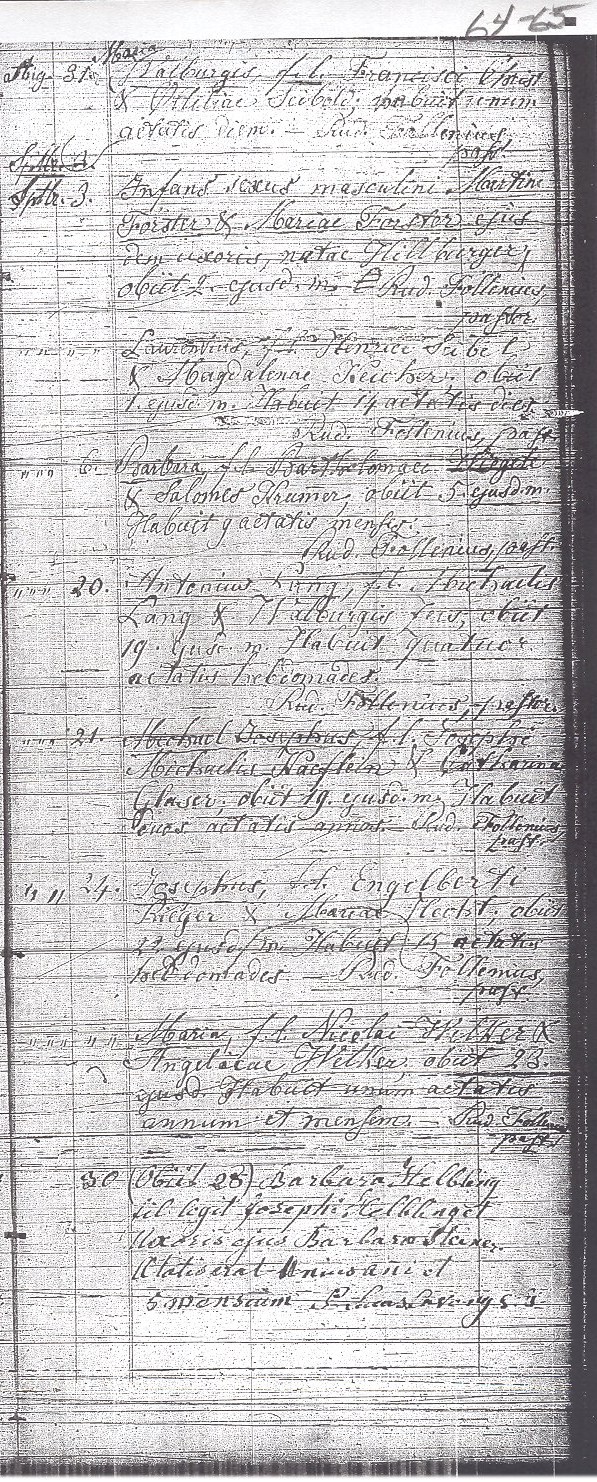 64-65
Maria
Aug. 31. Walburgis, f. l. Francisci
& Seibold; habuit unum
aetatis diem. — Rud. Follenius,
past.
Sptbr. 3.
Sptbr. 3. Infans sexus masculini Martini
Forster & Mariae Forster ejus
dem uxoris, natae Hillburger;
obiit 2. ejusd. m. Rud. Follenius,
pastor.
" " " " Laurentius, f. l. Henrici
& Magdalenae obiit
1. ejusd. m. Habuit 14 aetatis dies.
Rud. Follenius, past.
" " " 6. Barbara, f. l. Bartholomaei
& Salomes Krumer, obiit 5. ejusd. m.
Habuit 9 aetatis menses.
Rud. Follenius, past.
" " " 20. Antonius Lang, f. l. Michaelis
Lang & Walburgis obiit
19. ejusd. m. Habuit quatuor
aetatis hebdomades.
Rud. Follenius, pastor.
" " " 21. Michael Josephus, f. l. Josephi
Michaelis Kaeflein & Catharina
Glaser; obiit 19. ejusd. m. Habuit
duos aetatis annos. Rud. Follenius,
past.
" " 24. Josephus, f. l. Engelberti
Rieger & Mariae Hecht; obiit
22 ejusd. m. Habuit 15 aetatis
hebdomades — Rud. Follenius,
past.
" " " " Maria, f. l. Nicolai Welker &
Angelicae Welker, obiit 23
ejusd. Habuit unum aetatis
annum et mensem. — Rud. Follenius
past.
30 (Obiit 28) Barbara Helbling
fil legit Josephi Helbling et
Uxoris ejus Barbara
Aetatis erat Unius ani et
5 mensium